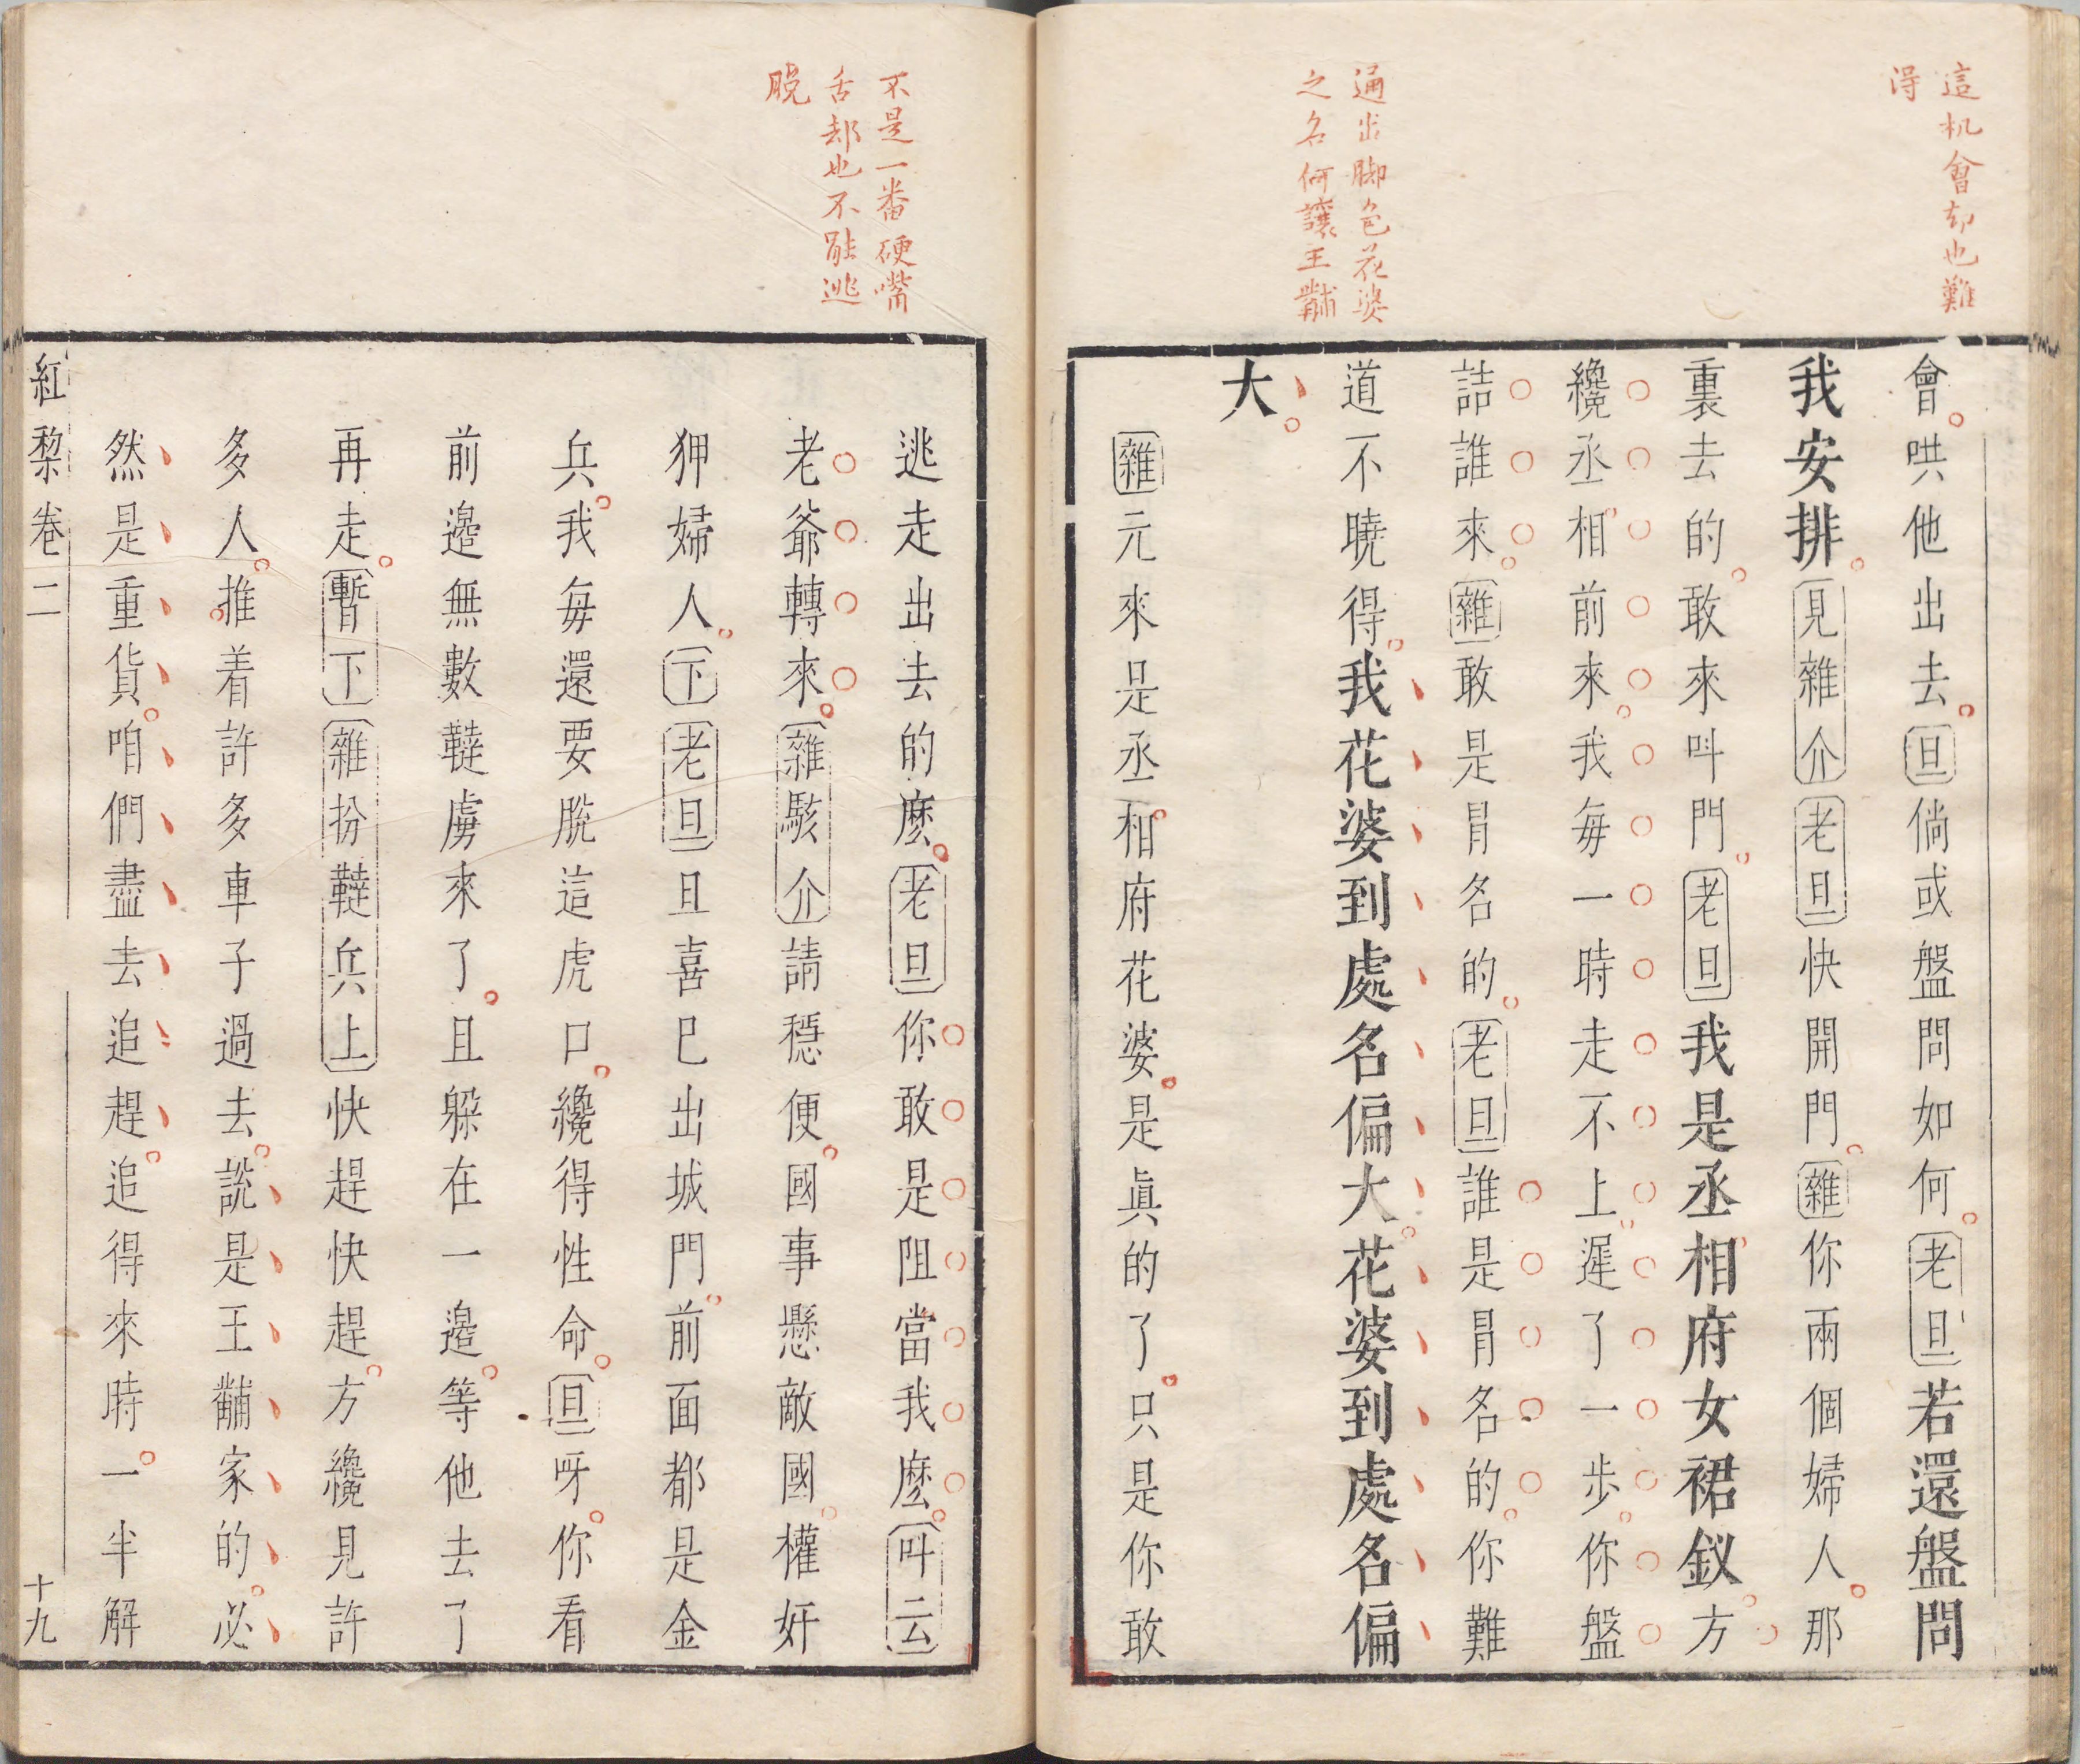 這机會却也難
得
通出脚色花婆
之名何讓王黼
會哄他出去旦倘或盤問如何老旦若還盤問
我安排見雜介老旦快開門雜你兩個婦人那
裏去的敢來叫門老旦我是丞相府女裙釵方
纔丞相前來我每一時走不上遲了一步你盤
詰誰來雜敢是冐名的老旦誰是冐名的你難
道不曉得我花婆到處名偏大花婆到處名偏
大
雜元來是丞相府花婆是眞的了只是你敢
不是一番硬嘴
舌却也不能逃
脫
逃走出去的麽老旦你敢是阻當我麽叫云
老爺轉來雜駭介請穩便國事懸敵國權奸
狎婦人下老旦且喜已出城門前面都是金
兵我每還要脫這虎口纔得性命旦呀你看
前邊無數韃虜來了且躱在一邊等他去了
再走暫下雜扮韃兵上快趕快趕方纔見許
多人推着許多車子過去說是王黼家的必
然是重貨咱們盡去追趕追得來時一半解
紅梨卷二
十九